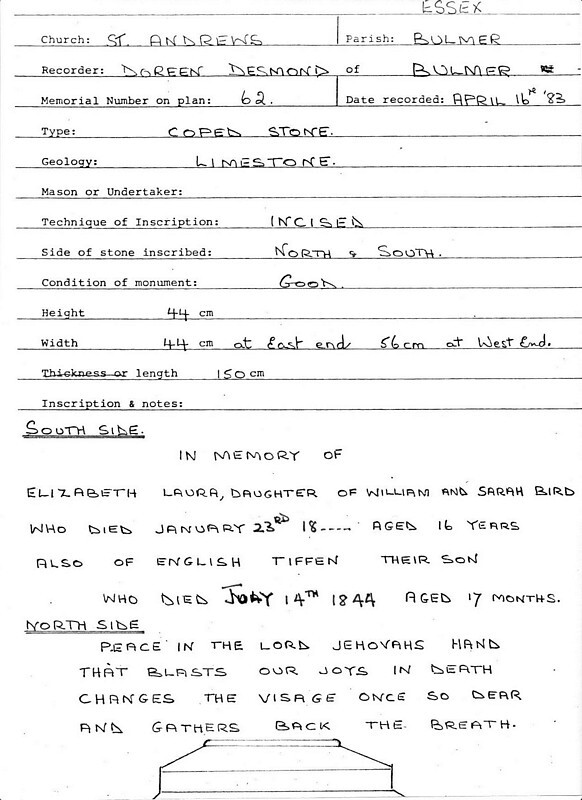 ESSEX
Church: ST. ANDREWS Parish: BULMER
Recorder: DOREEN DESMOND of BULMER
Memorial Number on plan: 62. Date recorded: APRIL 16TH '83
Type: COPED STONE.
Geology: LIMESTONE.
Mason or Undertaker:
Technique of Inscription: INCISED
Side of stone inscribed: NORTH & SOUTH.
Condition of monument: GOOD.
Height 44 cm
Width 44 cm at East end 56cm at West End.
Thickness or length 150 cm
Inscription & notes:
SOUTH SIDE.
IN MEMORY OF
ELIZABETH LAURA, DAUGHTER OF WILLIAM AND SARAH BIRD
WHO DIED JANUARY 23RD 18---- AGED 16 YEARS
ALSO OF ENGLISH TIFFEN THEIR SON
WHO DIED 14TH 1844 AGED 17 MONTHS.
NORTH SIDE
PEACE IN THE LORD JEHOVAHS HAND
THAT BLASTS OUR JOYS IN DEATH
CHANGES THE VISAGE ONCE SO DEAR
AND GATHERS BACK THE BREATH.